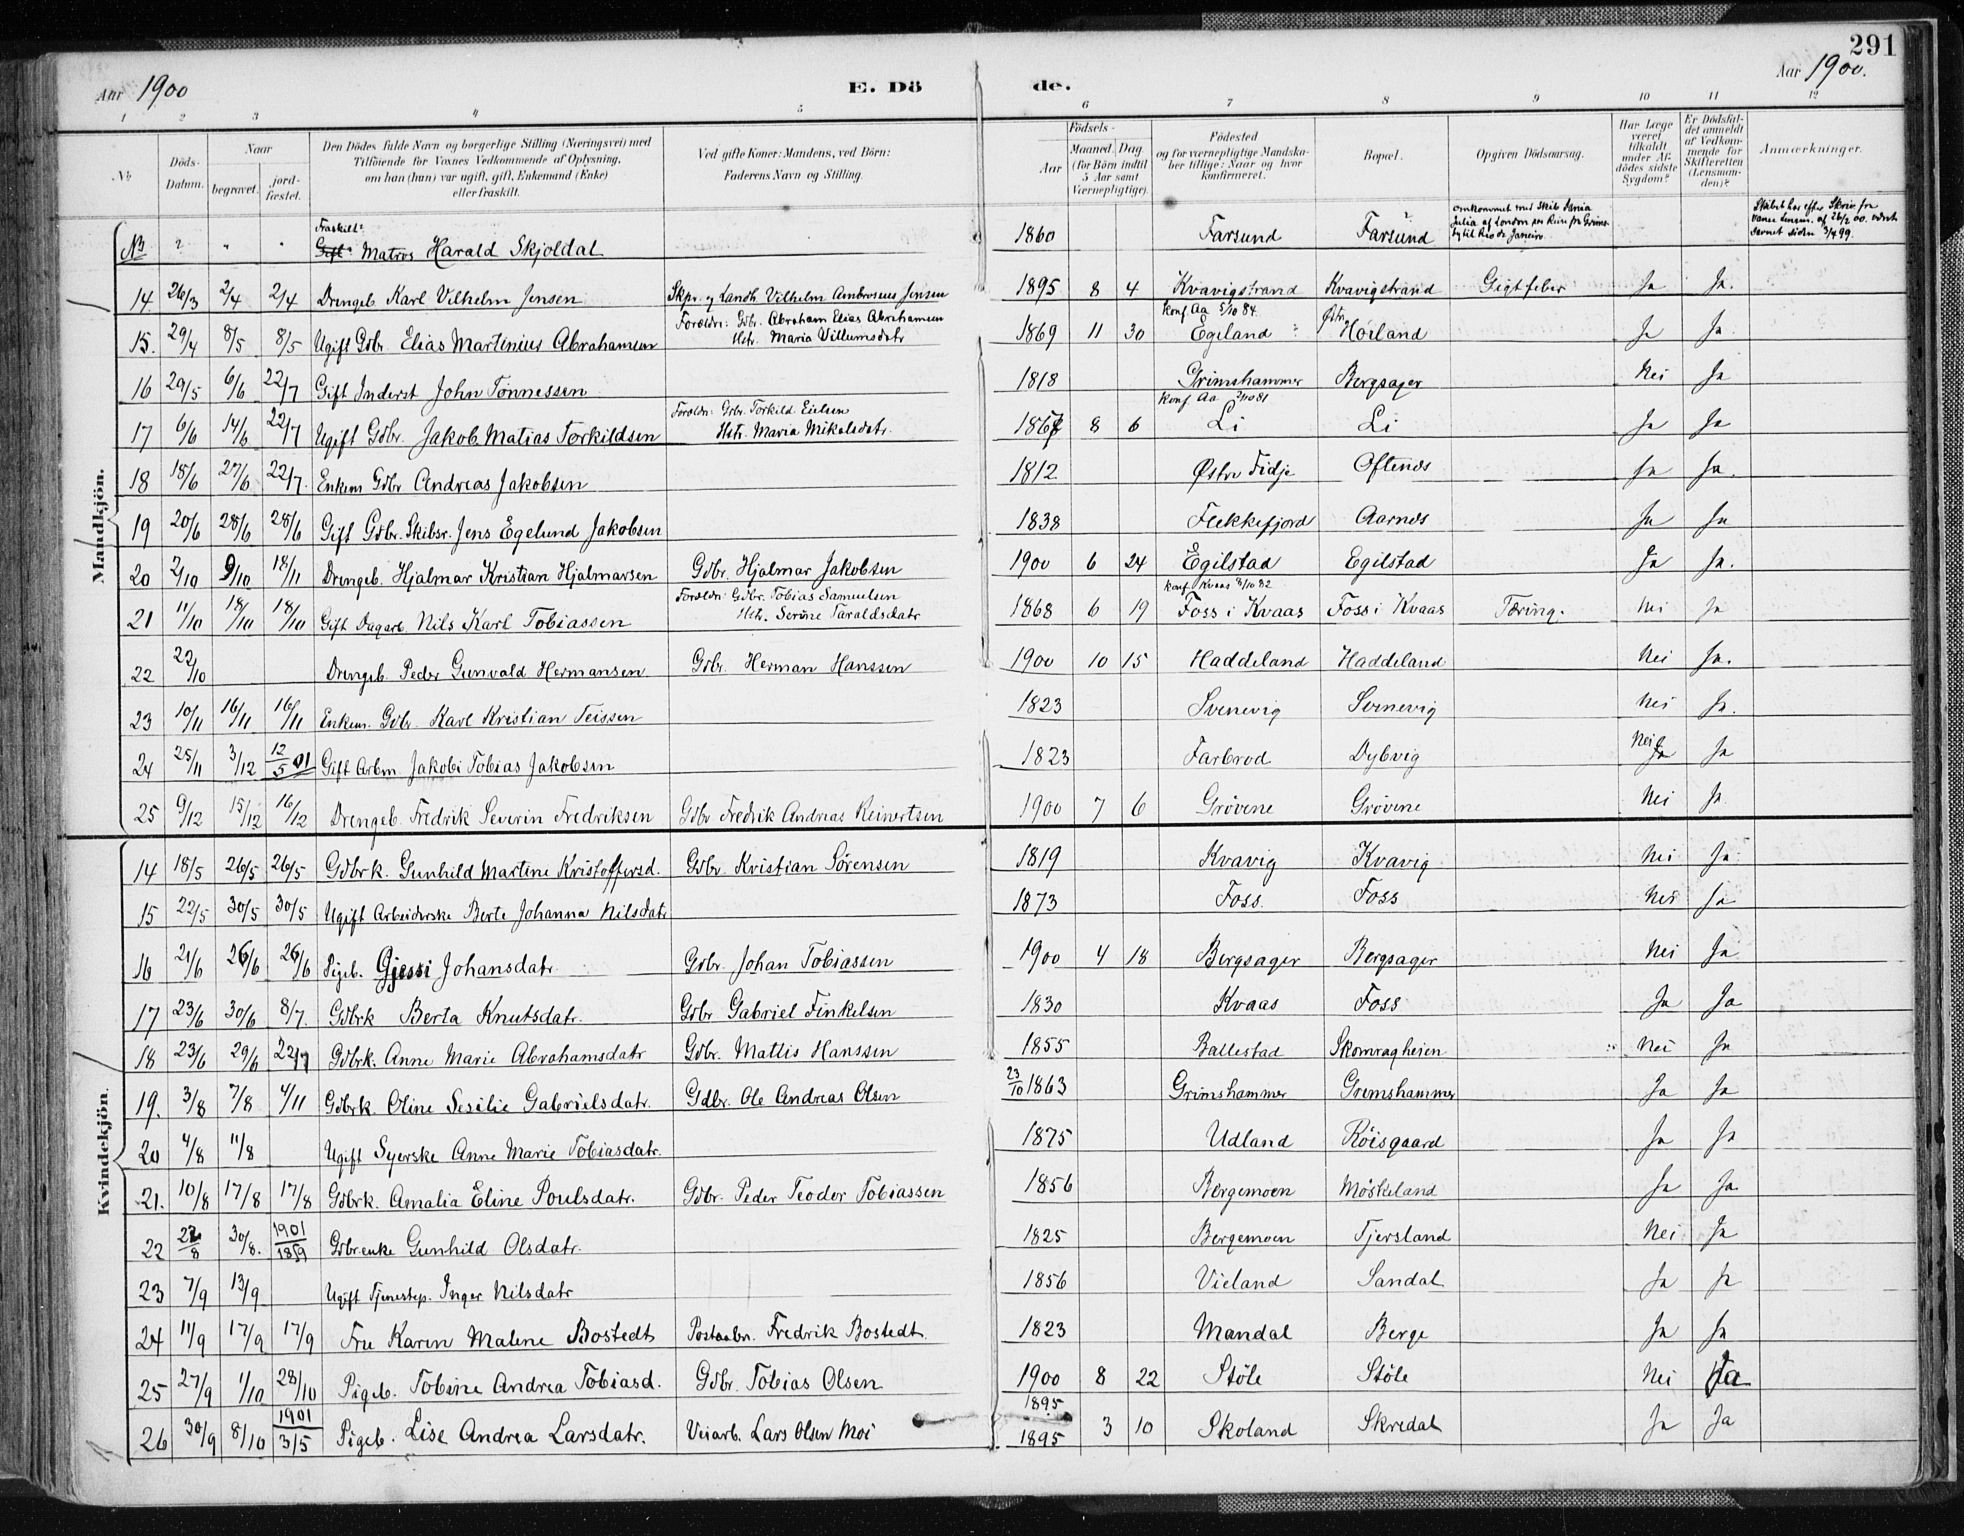 291
Aar 1900
E. Dö
de.
Aar 1900.
1 2 3 4 5 6 7 8 9 10 11 12
No.
Döds-Datum.
Naar
begravet.
jord-fæstet.
Den Dödes fulde Navn og borgerlige Stilling (Næringsvei) med
Tilföiende for Voxnes Vedkommende af Oplysning,
om han (hun) var ugift, gift, Enkemand (Enke)
eller fraskilt.
Ved gifte Koner: Mandens, ved Börn:
Faderens Navn og Stilling.
Födsels-
Aar
Maaned. Dag.
(for Börn indtil
5 Aar samt
Værnepligtige).
Födested
og for værnepligtige Mandska-
ber tillige: Naar og hvor
konfirmeret.
Bopæl.
Opgiven Dödsaarsag.
Har Læge
været
tilkaldt
under Af-
dödes sidste
Sygdom?
Er Dödsfal-
det anmeldt
af Vedkom-
mende for
Skifteretten
(Lensman-
den)?
Anmærkninger.
Mandkjön.
No ? " " Fraskilt? Gift? Matros Harald Skjoldal 1860 Farsund Farsund omkommet med Skib Jania Julia af London paa Rein fra Grims- by til Rio de Janeiro Skibet har efter Skriv fra Vanse Lensm. af 26/2 00 været savnet siden 3/4 99.
14. 26/3 2/4 2/4 Drengeb. Karl Vilhelm Jensen Skpr. og Landh. Vilhelm Ambrosius Jensen 1895 8 4 Kvavigstrand Kvavigstrand Gigtfeber Ja Ja.
15. 29/4 8/5 8/5 Ugift Gdbr. Elias Martinius Abrahamsen Forældr: Gdbr. Abraham Elias Abrahamsen Hstr. Maria Villumsdatr 1869 11 30 konf. Aa 5/10 84. Egeland Østr. Høiland Ja Ja.
16 29/5 6/6 22/7 Gift Inderst John Tønnessen 1818 Grimshammer Bergsager Nei Ja
17 6/6 14/6 22/7 Ugift Gdbr. Jakob Matias Torkildsen Forældr: Gdbr. Torkild Eielsen Hstr. Maria Mikalsdatr. 1867 8 6 konf Aa 2/10 81 Li Li Ja Ja
18 18/6 27/6 22/7 Enkem Gdbr Andreas Jakobsen 1812. Østre Fidje Oftenes Ja Ja.
19 20/6 28/6 28/6 Gift Gdbr. Skibsr. Jens Egelund Jakobsen 1838 Flekkefjord Aarnes Ja Ja
20 2/10 9/10 18/11 Drengeb. Hjalmar Kristian Hjalmarsen Gdbr. Hjalmar Jakobsen 1900 6 24 Egilstad Egilstad Ja Ja.
21 11/10 18/10 18/10 Gift Dagarb. Nils Karl Tobiassen Forældr: Gdbr. Tobias Samuelsen Hstr. Serine Taraldsdatr 1868 6 19 konf Kvaas 8/10 82 Foss i Kvaas Foss i Kvaas Tæring. Nei Ja
22 22/10 Drengeb. Peder Gunvald Hermansen. Gdbr. Herman Hanssen 1900 10 15 Haddeland Haddeland Nei Ja.
23 10/11 16/11 16/11 Enkem. Gdbr. Karl Kristian Teissen 1823 Svenevig Svenevig Nei Ja.
24 25/11 3/12 12/5 01 Gift Arbm. Jakobi Tobias Jakobsen 1823 Farbrod Dybvig Nei Ja Ja
25 9/12 15/12 16/12 Drengeb. Fredrik Severin Fredriksen Gdbr Fredrik Andreas Reinertsen 1900 7 6 Grövene Grövene Nei Ja.
Kvindekjön.
14 18/5 26/5 26/5 Gdbrk. Gunhild Martine Kristoffersd. Gdbr. Kristian Sörensen 1819 Kvavig Kvavig Nei Ja.
15 22/5 30/5 30/5 Ugift Arbeiderske Berte Johanna Nilsdatr 1873 Foss. Foss Nei Ja
16 21/6 26/6 26/6 Pigeb. Gjessi Johansdatr Gdbr. Johan Tobiassen 1900 4 18 Bergsager Bergsager Nei Ja
17 23/6 30/6 8/7. Gdbrk Berta Knutsdatr. Gdbr Gabriel Finkelsen 1830 Kvaas Foss Ja Ja
18 23/6 29/6 22/7 Gdbrk. Anne Marie Abrahamsdatr Gdbr. Mattis Hanssen 1855 Ballestad Skomragheien Nei Ja
19. 3/8 7/8 4/11 Gdbrk. Oline Sesilie Gabrielsdatr. Gdbr. Ole Andreas Olsen 23/10 1863 Grimshammer Gremshammer Ja Ja
20 4/8 11/8 Ugift Syerske Anne Marie Tobiasdatr. 1875 Udland Röisgaard Ja Ja
21. 10/8 17/8 17/8 Gdbrk. Amalia Eline Poulsdatr. Gdbr. Peder Teodor Tobiassen 1856 Bergemoen Möskeland Ja Ja
22 22/8 30/8. 1901 18/9 Gdbr.enke Gunhild Olsdatr. 1825 Bergemoen Tjersland Nei Ja
23 7/9 13/9 Ugift Tjenestep. Inger Nilsdatr 1856 Vieland Sandal Ja Ja
24 11/9 17/9 17/9 Fru Karen Malene Bostedt Postaabn. Fredrik Bostedt. 1823 Mandal Berge Ja Ja
25 27/9 1/10 28/10 Pigeb. Tobine Andrea Tobiasd. Gdbr. Tobias Olsen 1900 8 22 Støle Støle Nei Ja
26 30/9 8/10 1901 3/5 Pigeb. Lise Andrea Larsdatr. Veiarb. Lars Olsen Moi 1895 1895 3 10 Skoland Skredal Ja Ja